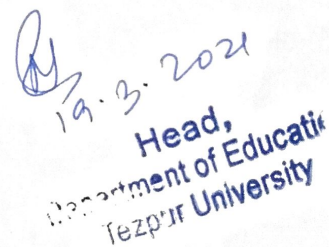 19.3.2021
Head,
Department of Educati
Tezpur University